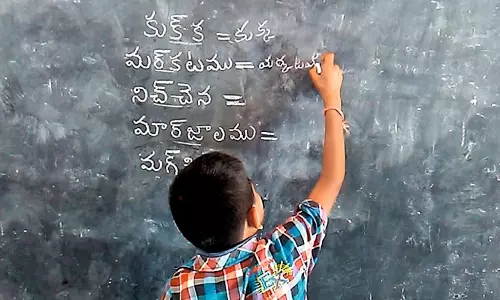 కుక్‌క = కుక్క
మర్‌కటము = మర్కటమ
నిచ్‌చెన =
మార్‌జాలము =